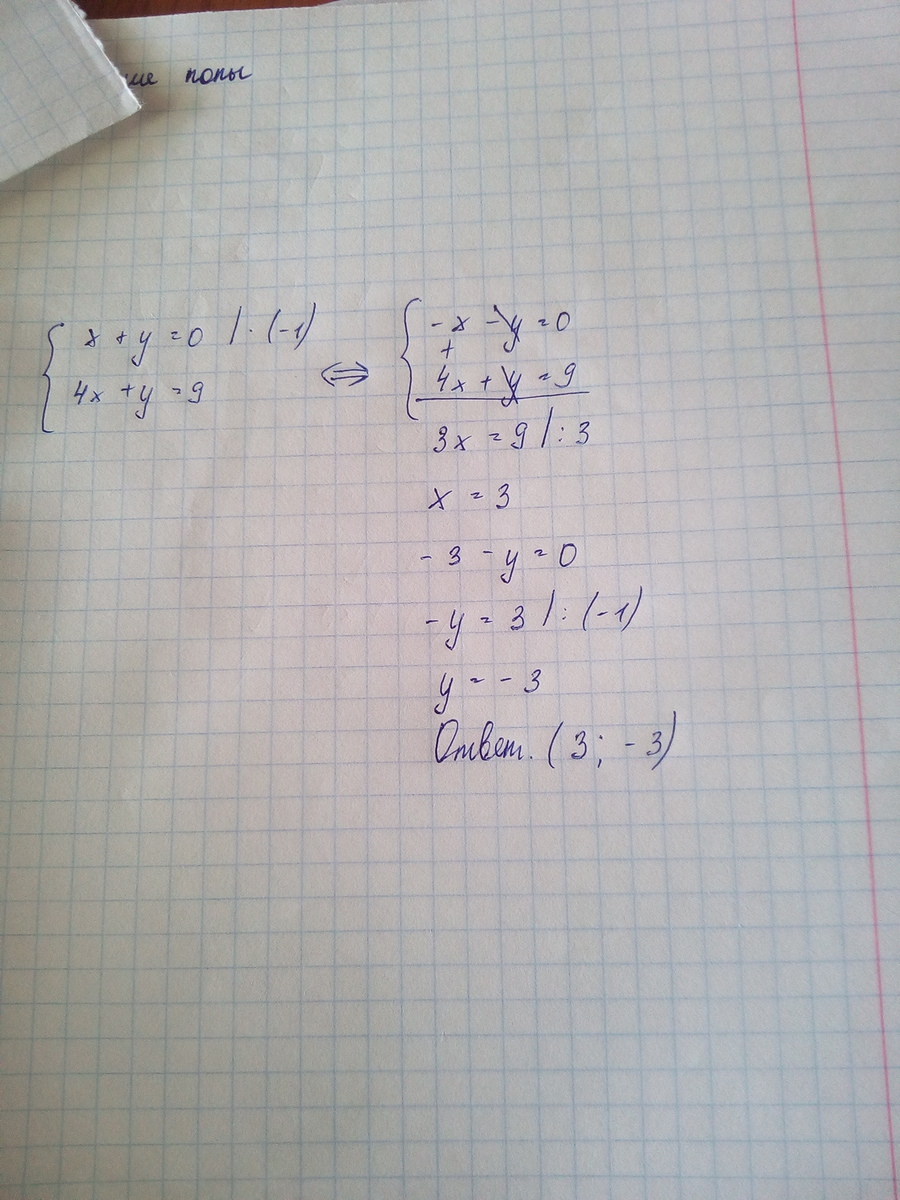 попы
x + y = 0 | · (-1)
4x + y = 9
⇔
-x - y = 0
+
4x + y = 9
3x = 9 | : 3
x = 3
-3 - y = 0
-y = 3 | : (-1)
y = -3
Ответ. (3; -3)